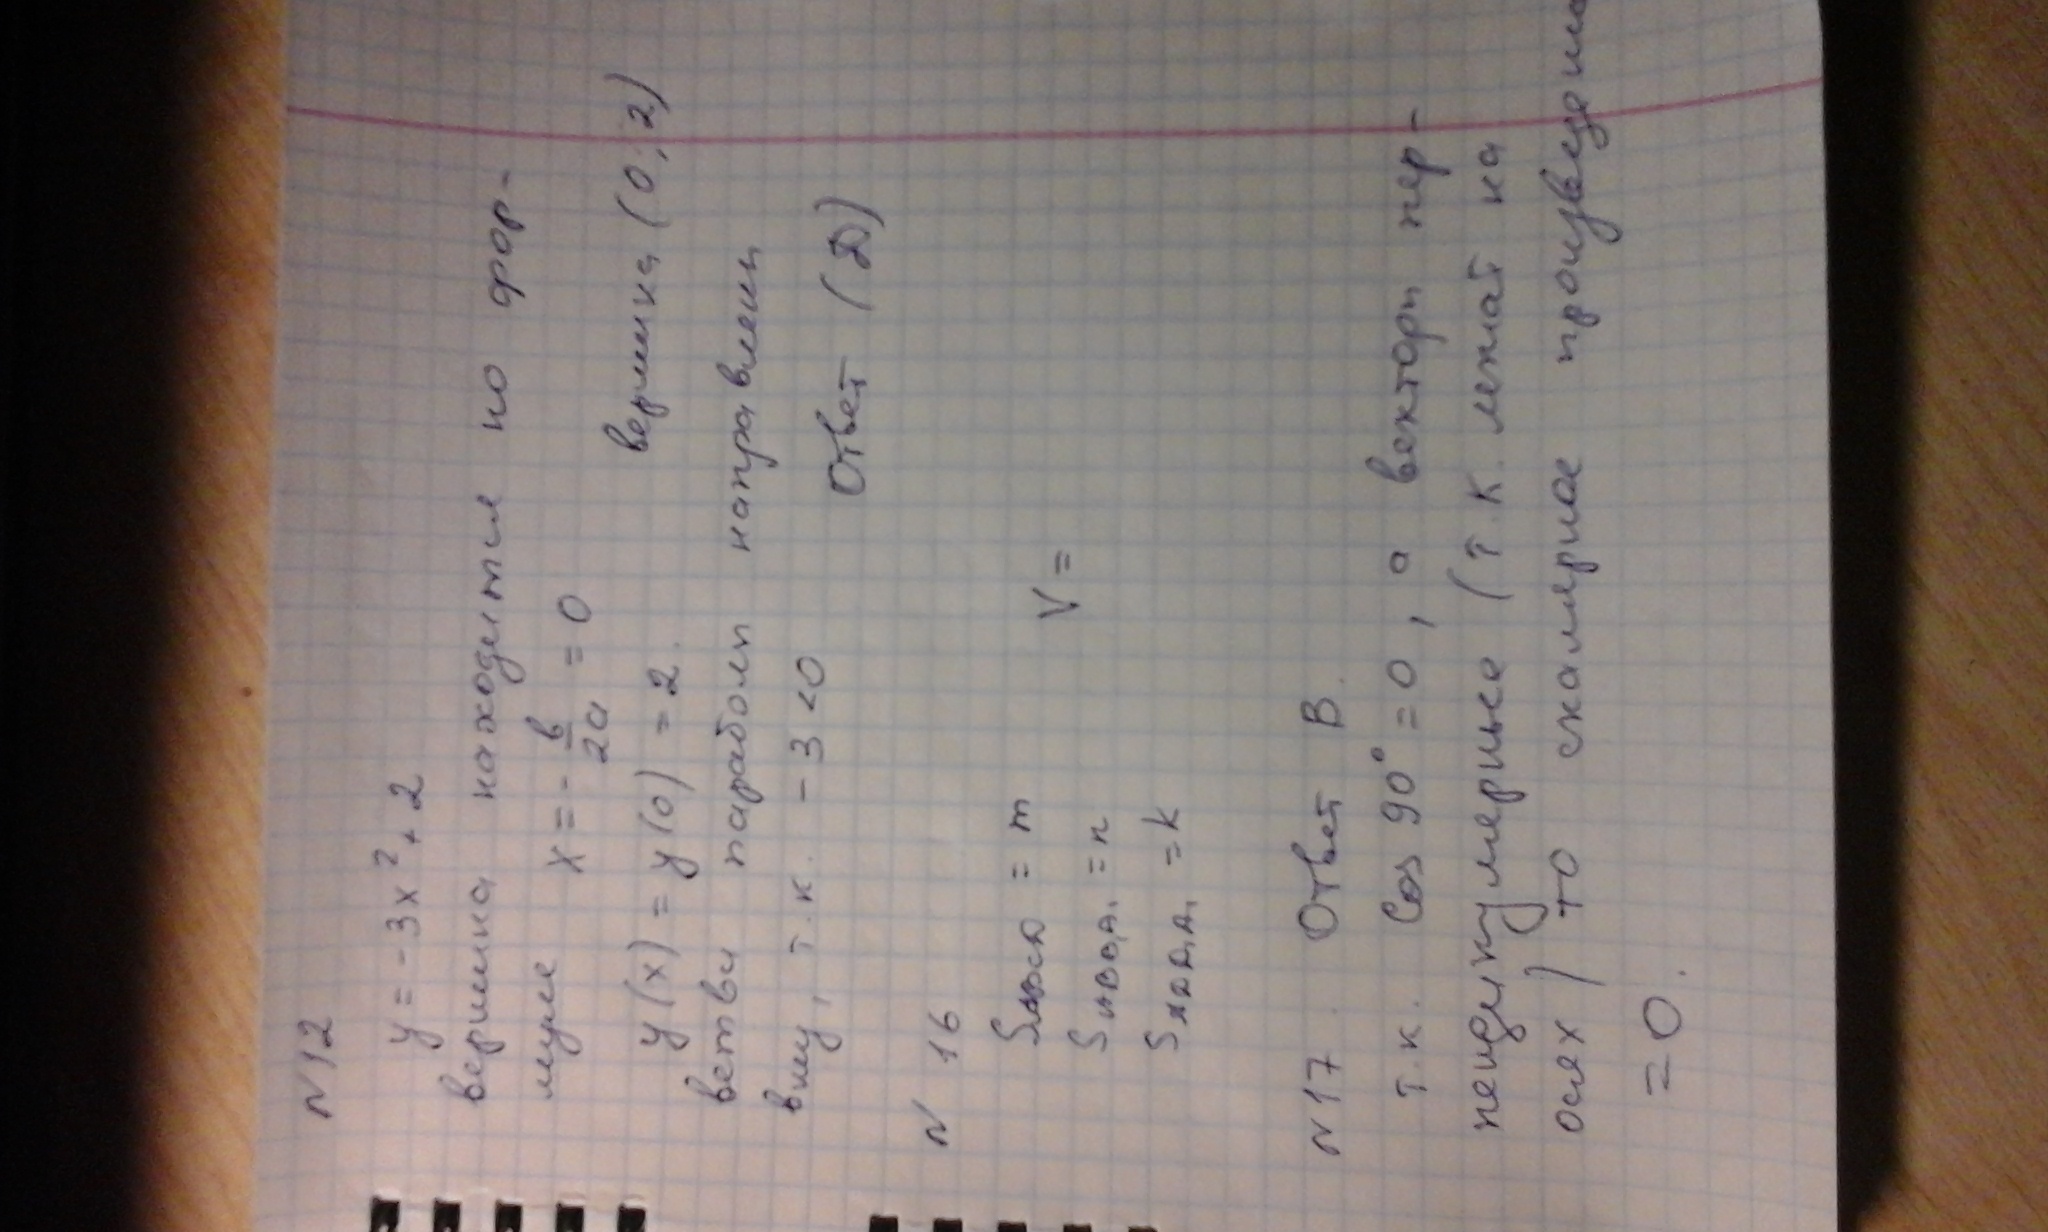 N12
y = -3x² + 2
вершина находится по фор-
муле x = -b/2a = 0
y(x) = y(0) = 2. вершина (0; 2)
ветви параболы направлены
вниз, т.к. -3 < 0
Ответ (D)
N 16
S_ABCD = m
S_ABB₁A₁ = n V =
S_ADD₁A₁ = k
N17. Ответ B.
т.к. Cos 90° = 0, а векторы пер-
пендикулярные (т.к. лежат на
осях) то скалярное
= 0.